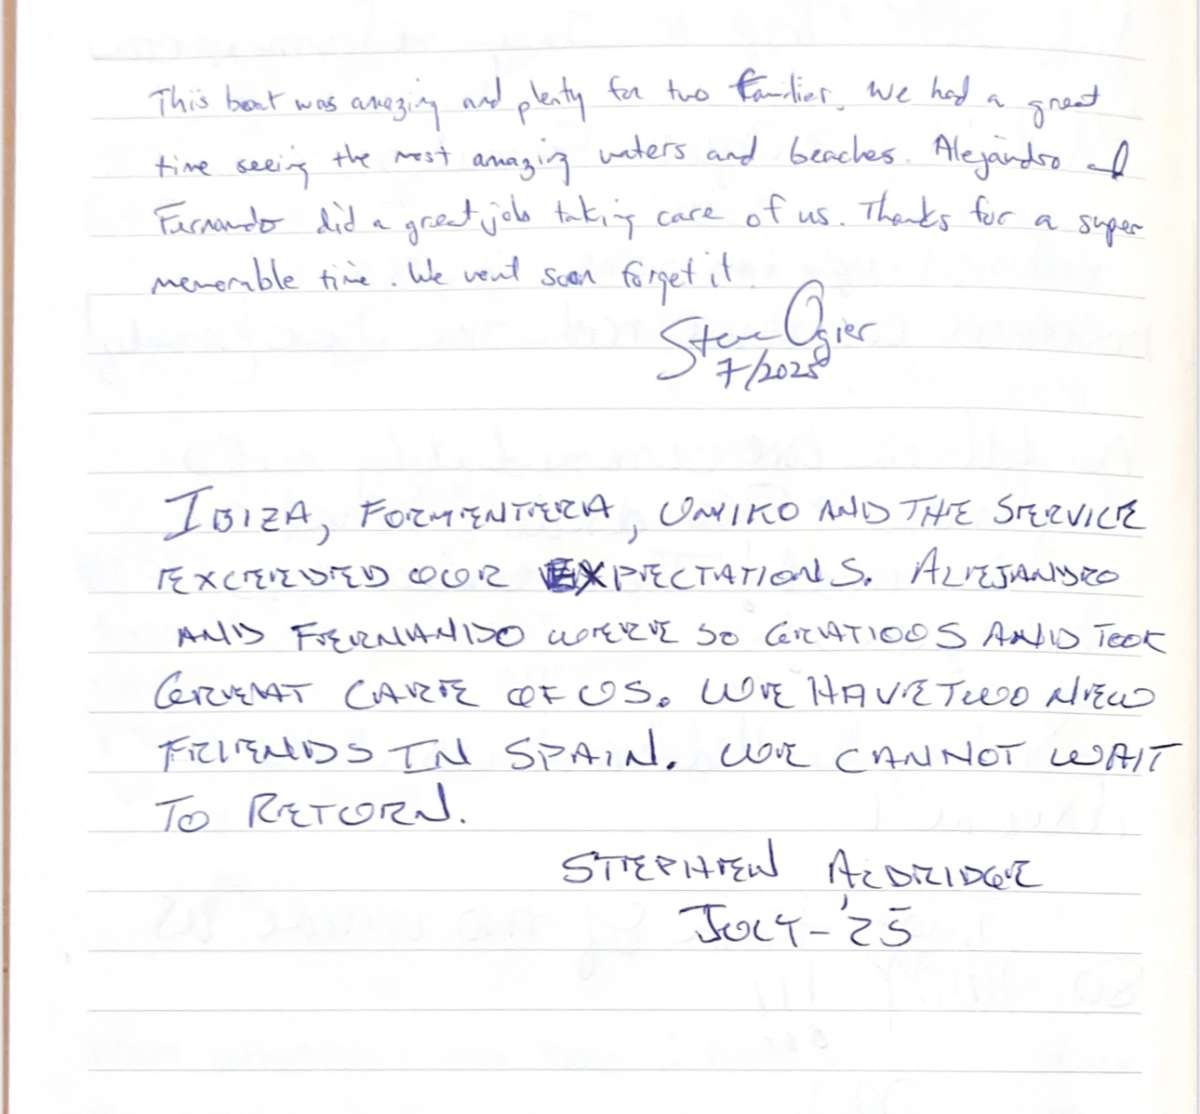 This boat was amazing and plenty for two families. We had a great
time seeing the most amazing waters and beaches. Alejandro and
Fernando did a great job taking care of us. Thanks for a super
memorable time. We wont soon forget it.
Steve Ogier
7/2025
IBIZA, FORMENTERA, UNIKO AND THE SERVICE
EXCEEDED OUR EXPECTATIONS. ALEJANDRO
AND FERNANDO WERE SO GRATIOUS AND TOOK
GREAT CARE OF US. WE HAVE TWO NEW
FRIENDS IN SPAIN. WE CANNOT WAIT
TO RETURN.
STEPHEN ALDRIDGE
JULY-'25